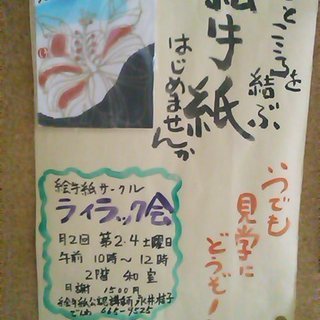 とこころを
結ぶ
絵手紙
はじめませんか
いつでも
見学に
どうぞ!
絵手紙サークル
ライラック会
月2回 第2.4土曜日
午前 10時〜12時
2階 和室
月謝 1500円
絵手紙公認講師 永井
665-9525